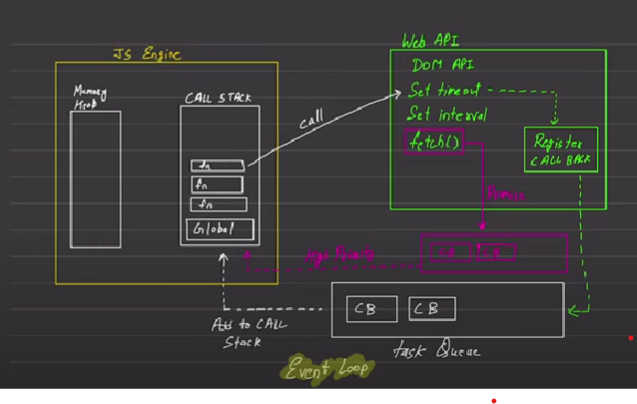 JS Engine
Memory
Heab
CALL STACK
fn
fn
fn
Global
call
Web API
DOM API
Set timeout
Set interval
fetch()
Register
CALL BACK
Promice
High Priority
CB
CB
CB
CB
Add to CALL
Stack
task Queue
Event Loop